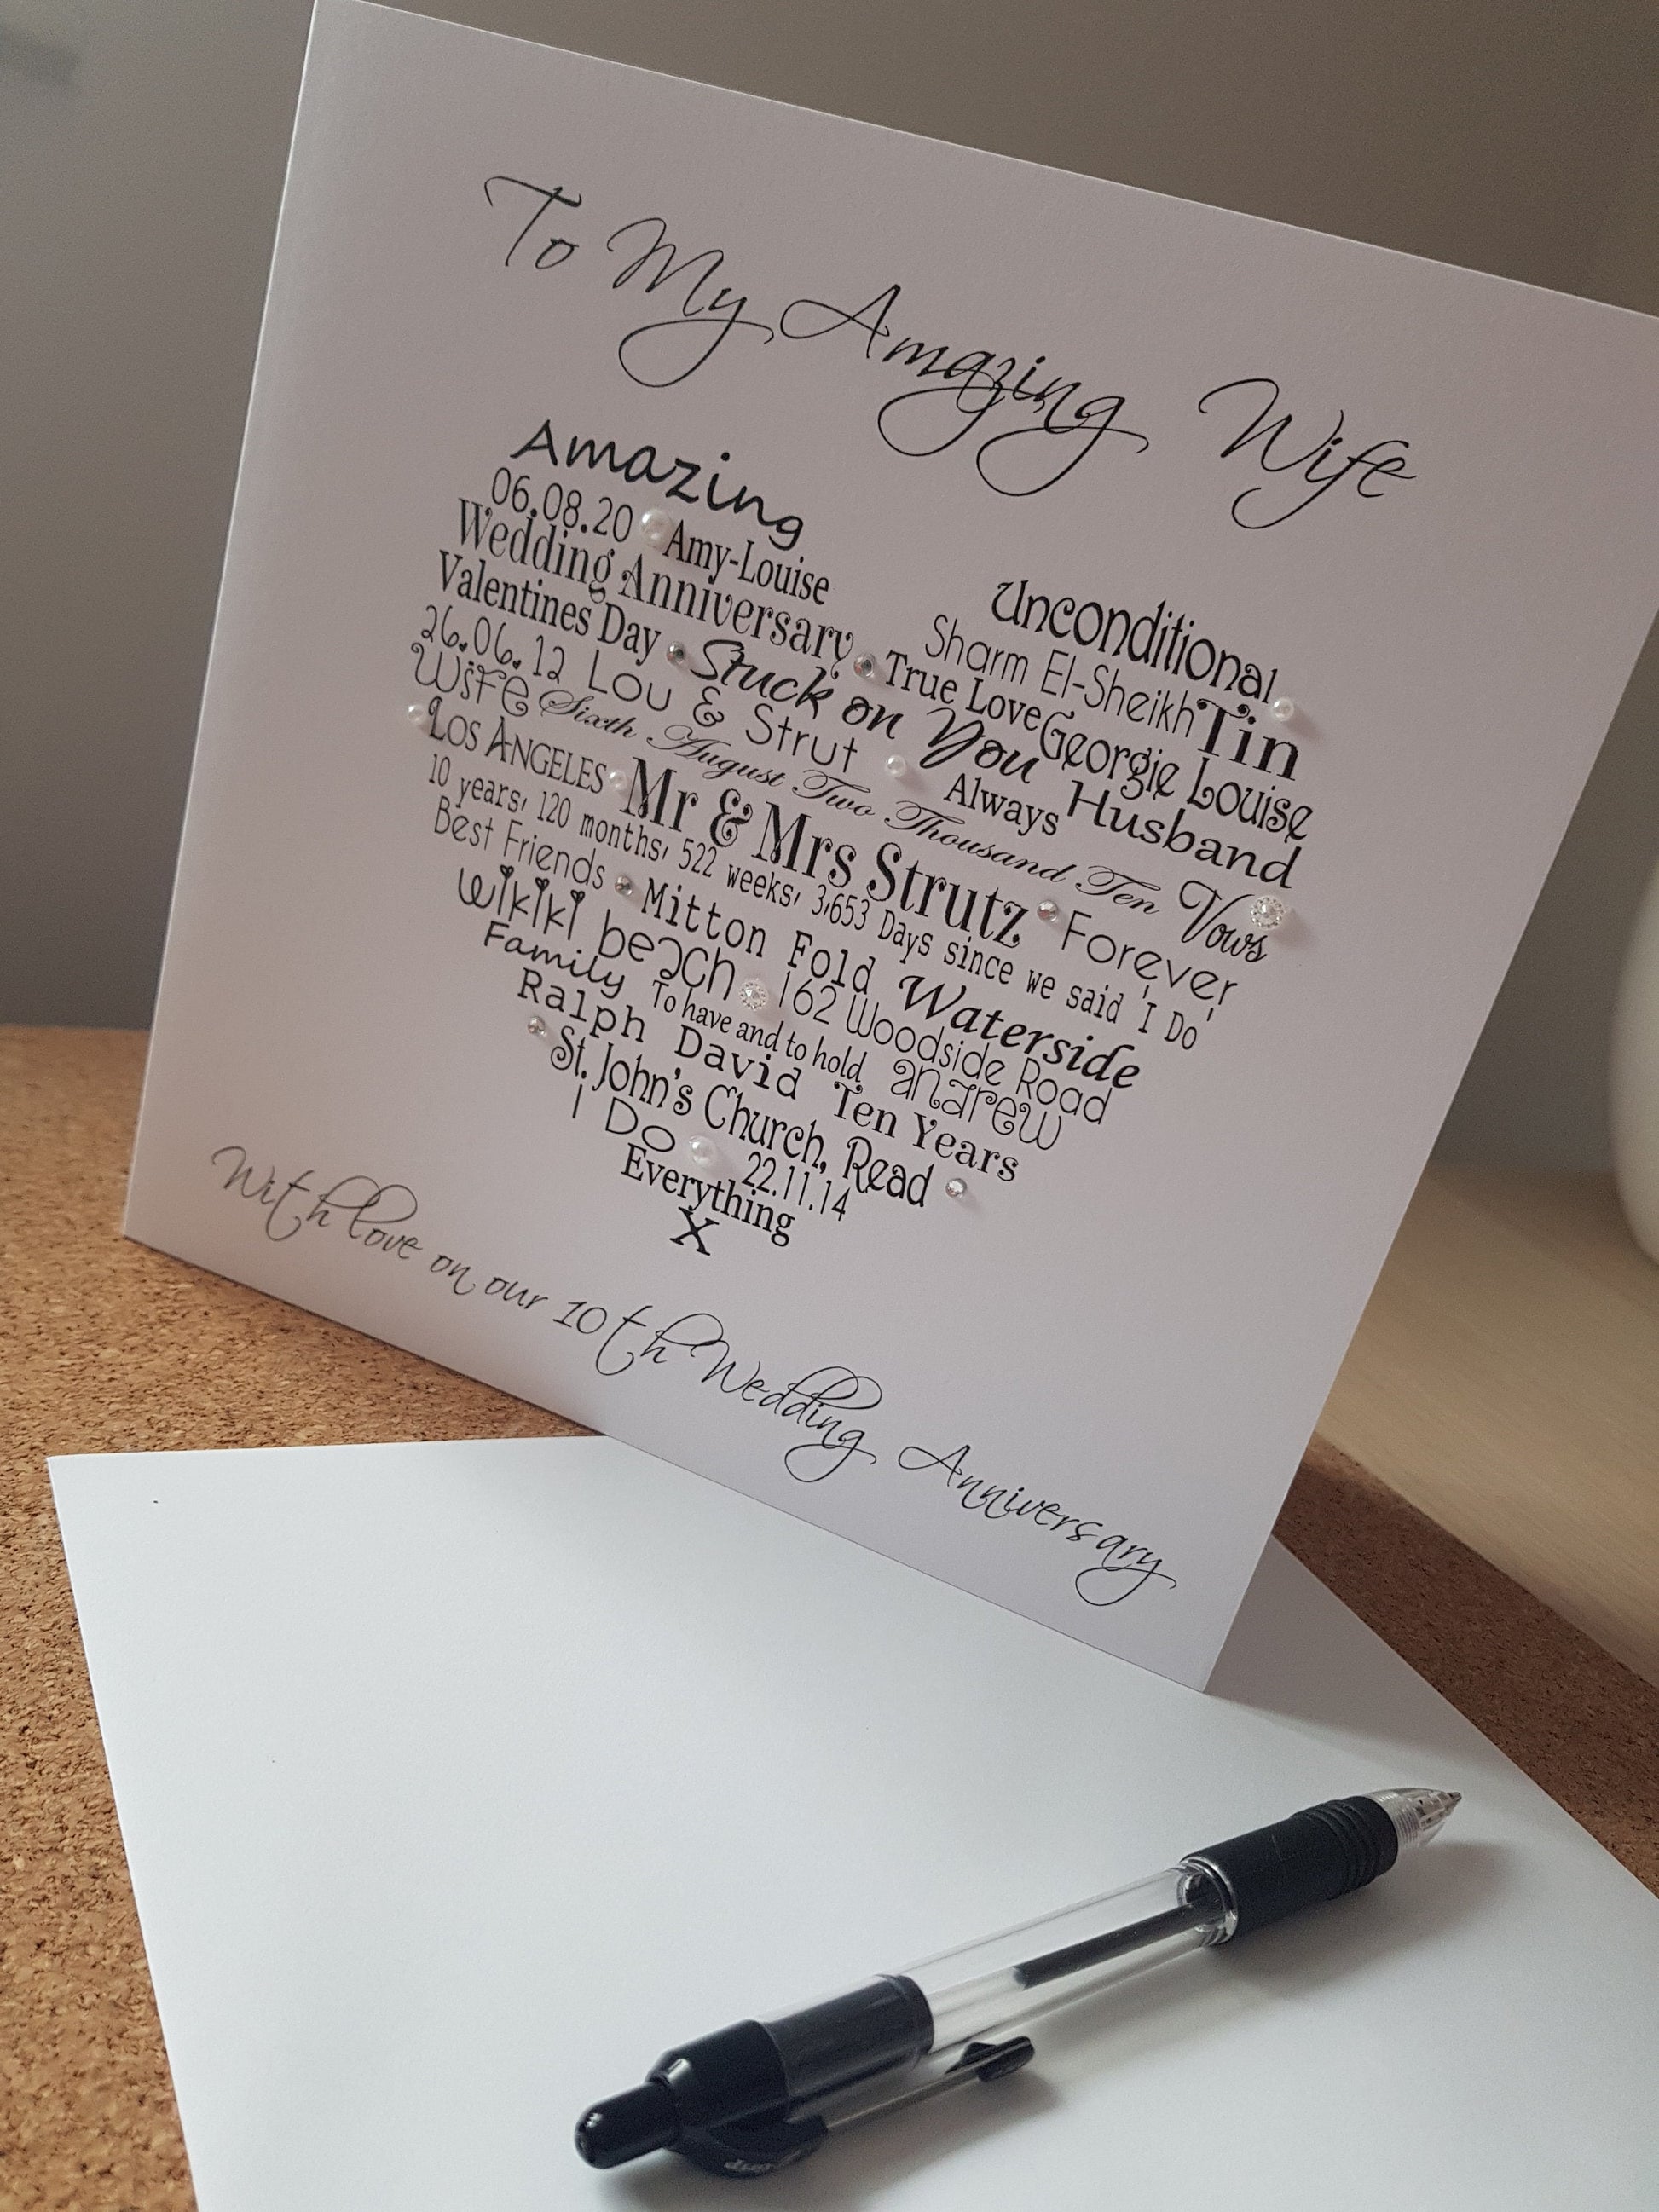 To My Amazing Wife
Amazing
Unconditional
06.08.20 Amy-Louise
Sharm El-Sheikh Tin
Wedding Anniversary True Love Georgie Louise
Valentines Day Stuck on You Husband
26.06.12 Lou & Strut Always
Wife Sixth August Two Thousand Ten Vows
Los Angeles Mr & Mrs Strutz Forever
10 years, 120 months, 522 weeks, 3,653 Days since we said 'I Do'
Best Friends Mitton Fold Waterside
wikiki beach 162 Woodside Road
Family To have and to hold andrew
Ralph David Ten Years
St. John's Church, Read
I Do 22.11.14
Everything
X
With love on our 10th Wedding Anniversary